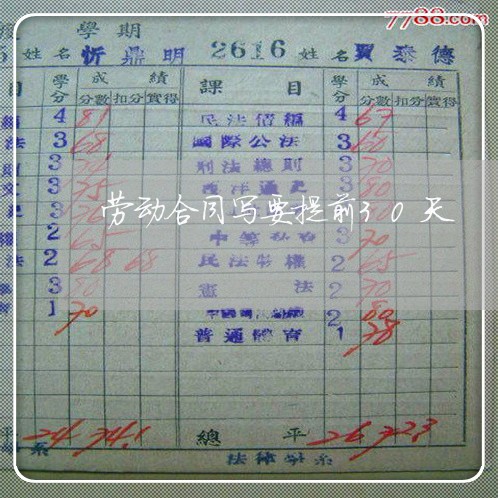 7788.com
學期
5 姓名 忻鼎明 2616 姓名 賈泰德
目 學分 成績 課目 學分 成績
分數 扣分 實得 分數 扣分 實得
4 81 民法債編 4 67
法 3 68 國際公法 3 60
3 刑法總則 3 70
文 3 75 西洋通史 3 80
劳动合同写要提前30天
權 2 65 3 70
法 2 68 68 民法物權 2 65
3 80 憲法 2 70
1 70 2 80
普通體育 1 78
平 24 74.1 總平 26 72.3
系 法律學系